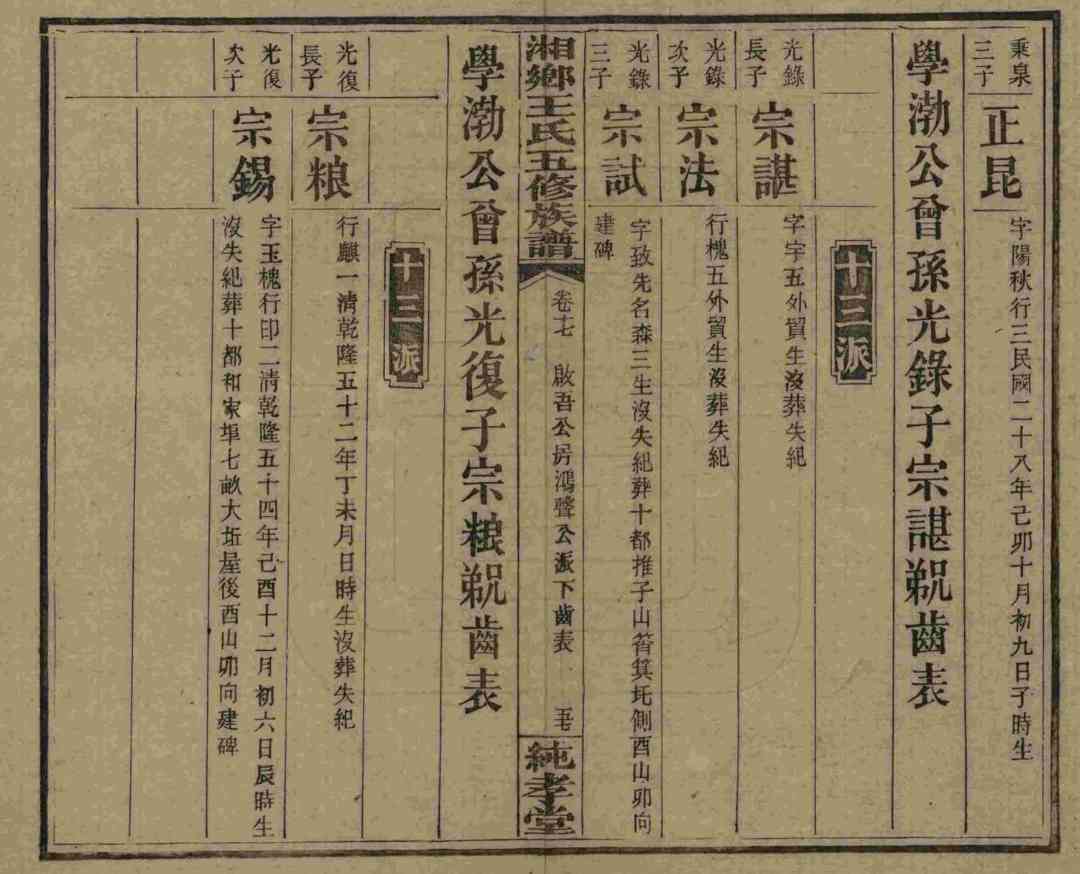 乘泉三子
正昆
字陽秋行三民國二十八年己卯十月初九日子時生
學渤公曾孫光錄子宗諶覜齒表
十三派
光錄長子
宗諶
字宇五外貿生沒葬失紀
光錄次子
宗法
行槐五外貿生沒葬失紀
光錄三子
宗試
字致先名森三生沒失紀葬十都推子山筲箕坵側酉山卯向
建碑
湘鄉王氏五修族譜
卷十七
啟吾公房鴻聲公派下齒表
純孝堂
學渤公曾孫光復子宗粮覜齒表
十三派
光復長子
宗粮
行麒一清乾隆五十二年丁未月日時生沒葬失紀
光復次子
宗錫
字玉槐行印二清乾隆五十四年己酉十二月初六日辰時生
沒失紀葬十都和家埠七畝大坵屋後酉山卯向建碑